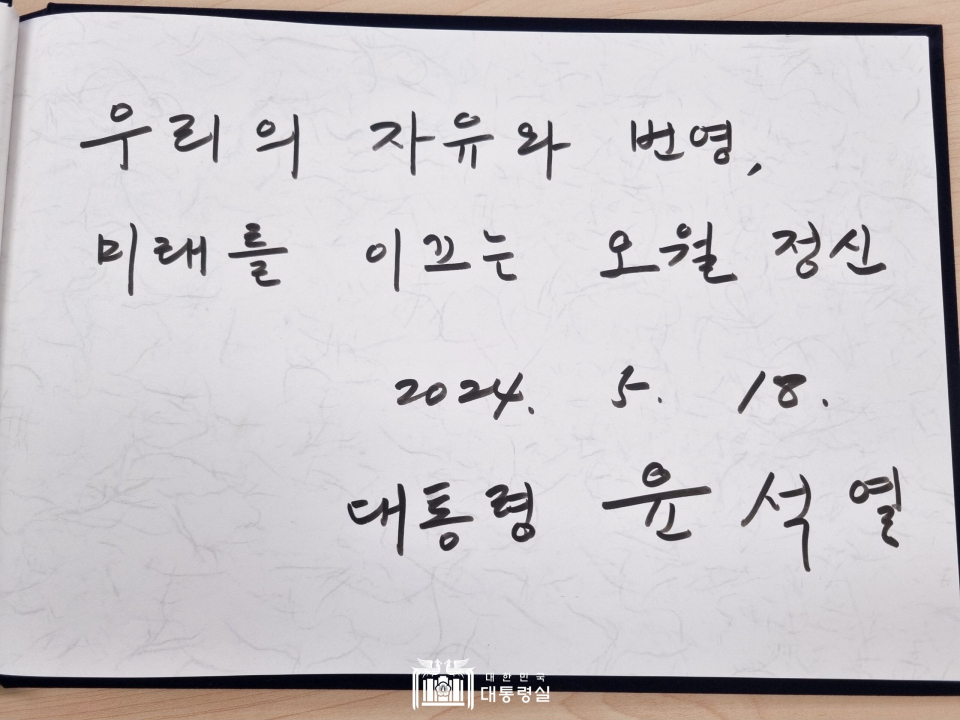 우리의 자유와 번영,
미래를 이끄는 오월 정신
2024. 5. 18.
대통령 윤석열
대한민국
대통령실